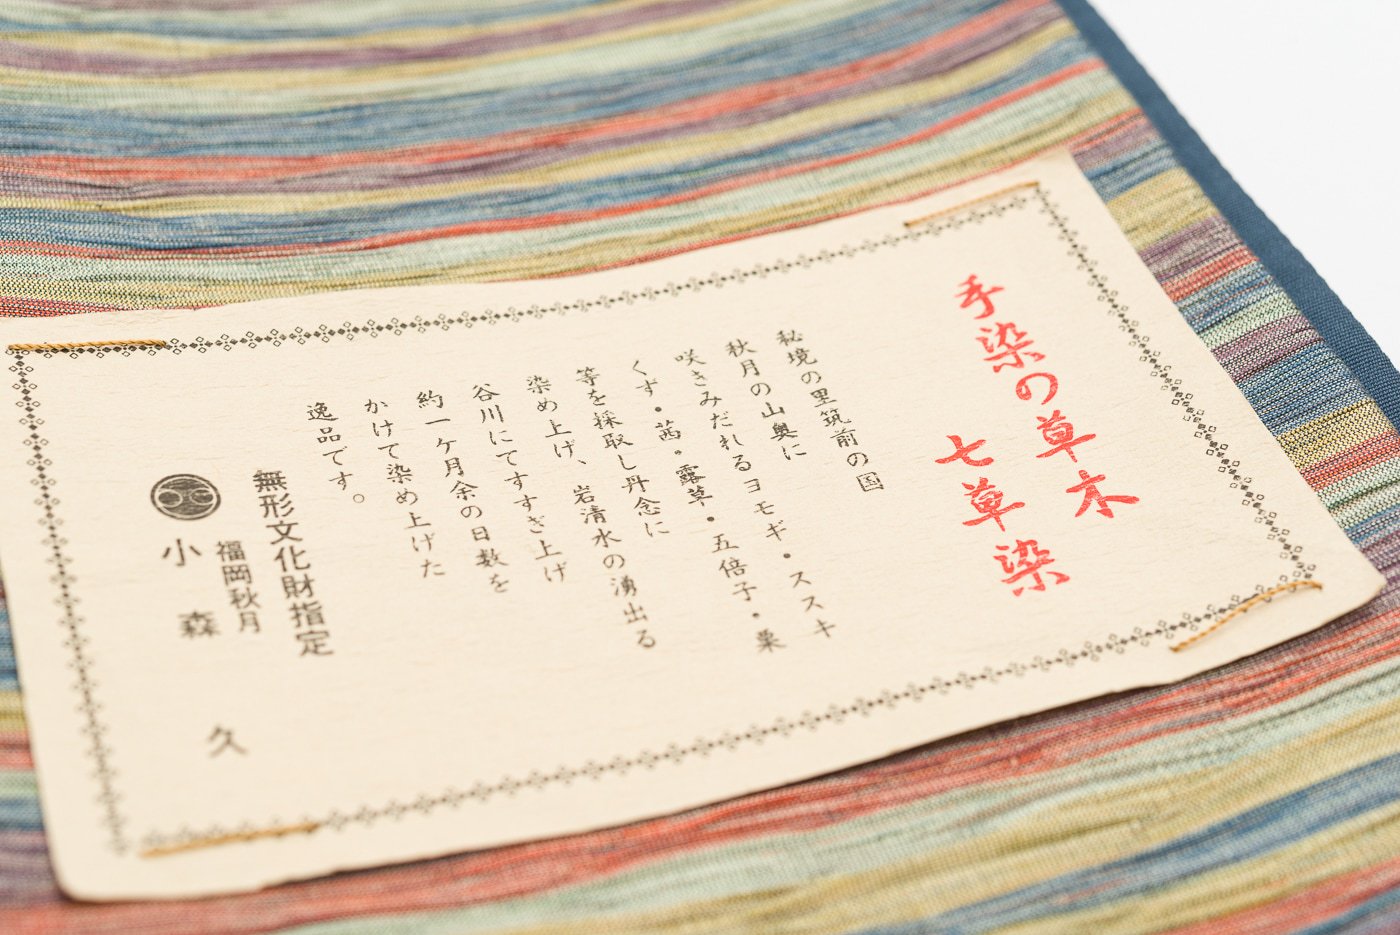 手染の草木
七草染
秘境の里筑前の国
秋月の山奥に
咲きみだれるヨモギ・ススキ
くず・茜・露草・五倍子・栗
等を採取し丹念に
染め上げ、岩清水の湧出る
谷川にてすすぎ上げ
約一ケ月余の日数を
かけて染め上げた
逸品です。
無形文化財指定
福岡秋月
小森 久